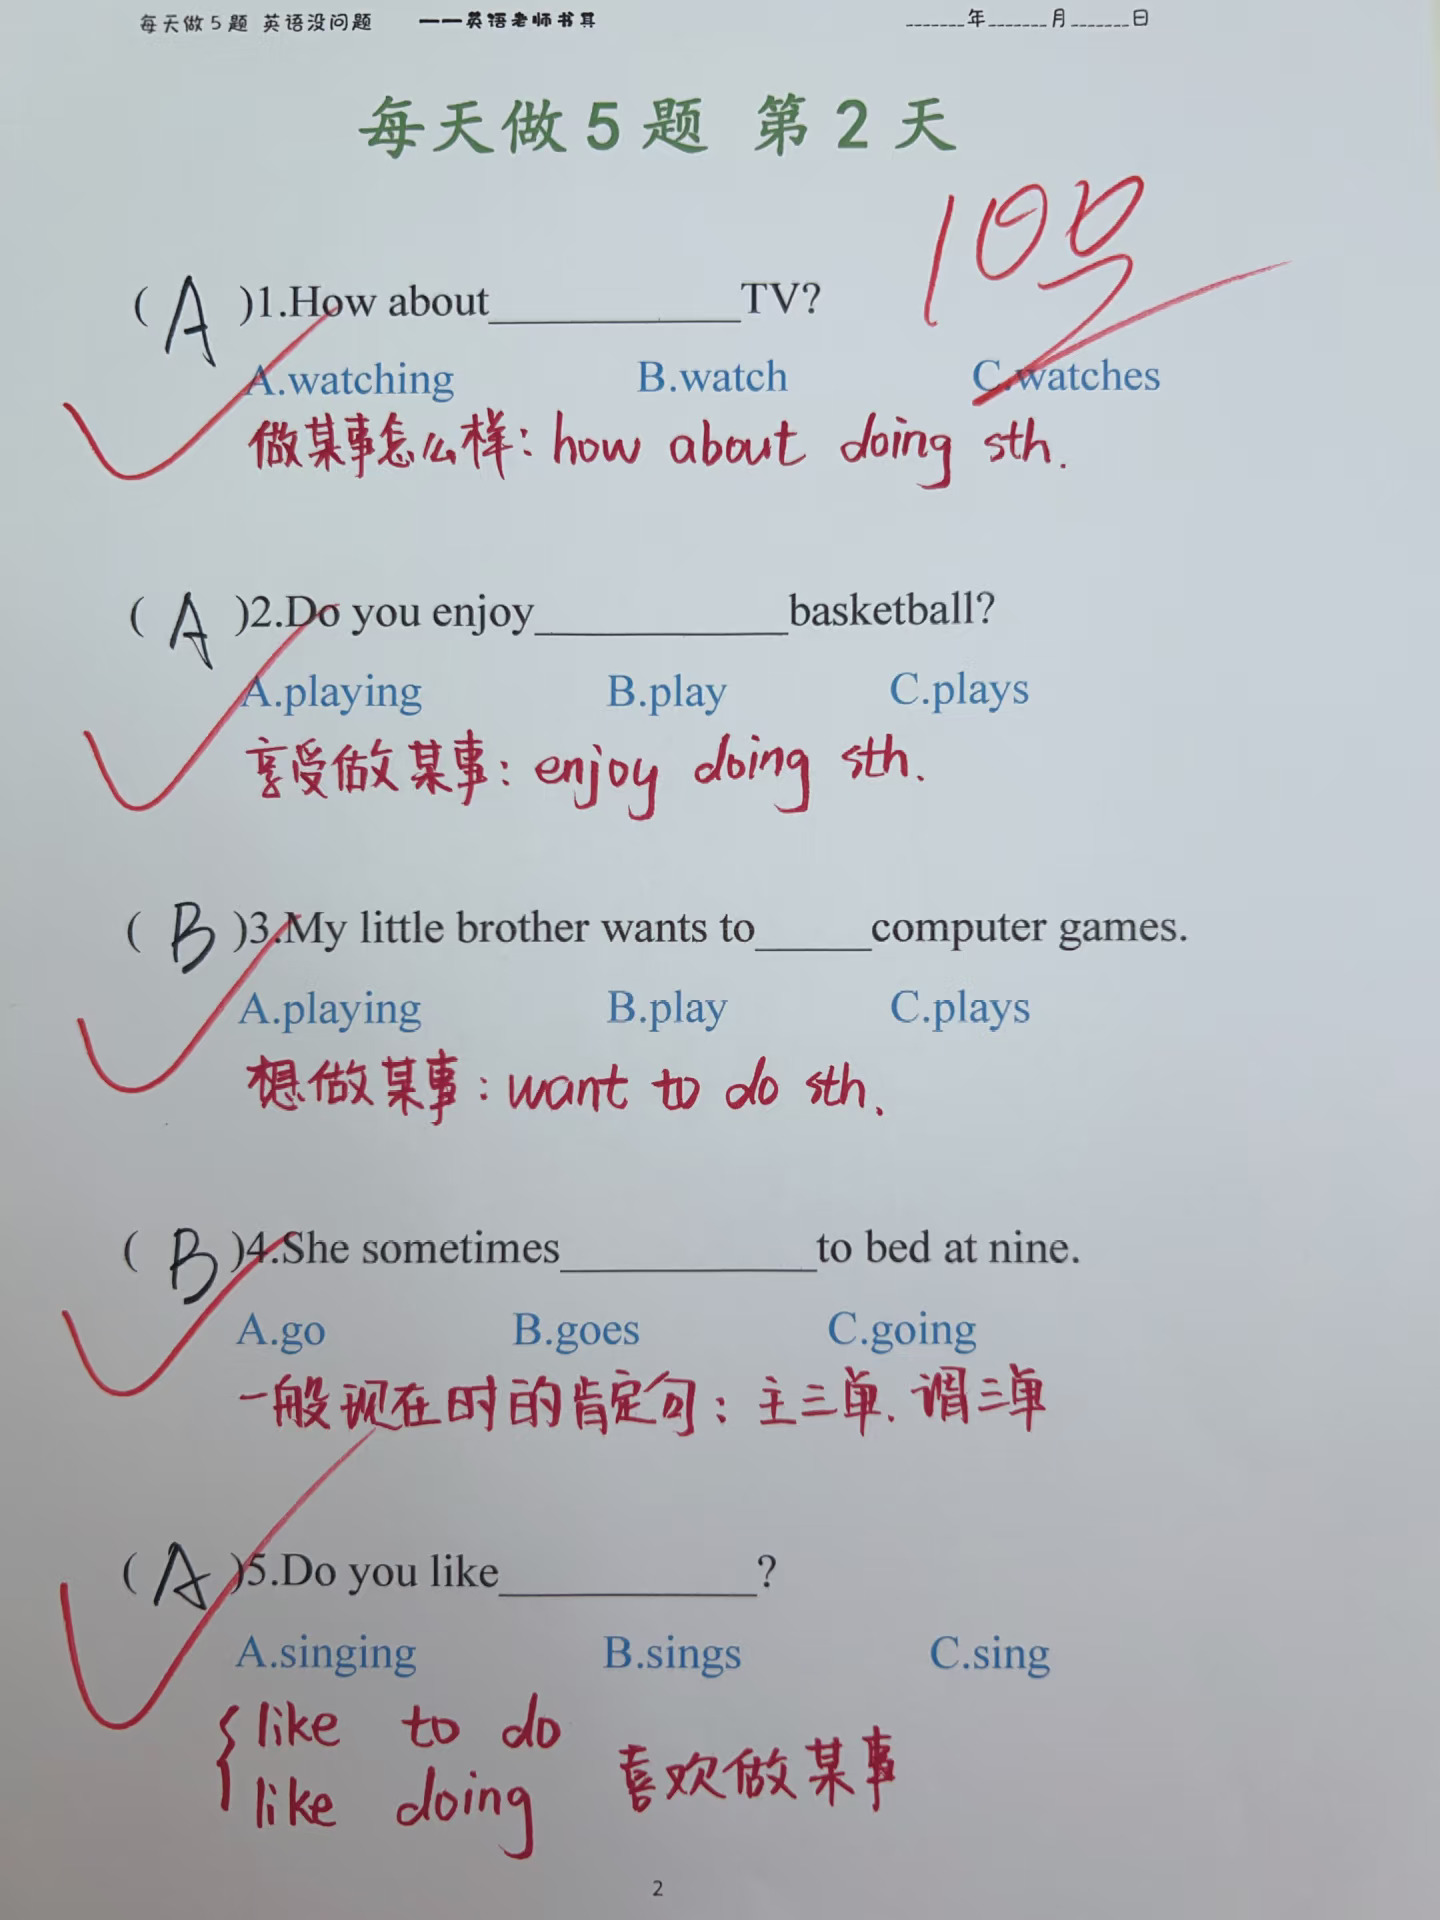 每天做5题 英语没问题 ——英语老师书其 ______年______月______日
每天做5题 第2天
100
( A )1.How about__________TV?
A.watching B.watch C.watches
做某事怎么样: how about doing sth.
( A )2.Do you enjoy__________basketball?
A.playing B.play C.plays
享受做某事: enjoy doing sth.
( B )3.My little brother wants to_____computer games.
A.playing B.play C.plays
想做某事: want to do sth.
( B )4.She sometimes__________to bed at nine.
A.go B.goes C.going
一般现在时的肯定句: 主三单. 谓三单
( A )5.Do you like__________?
A.singing B.sings C.sing
like to do
like doing 喜欢做某事
2